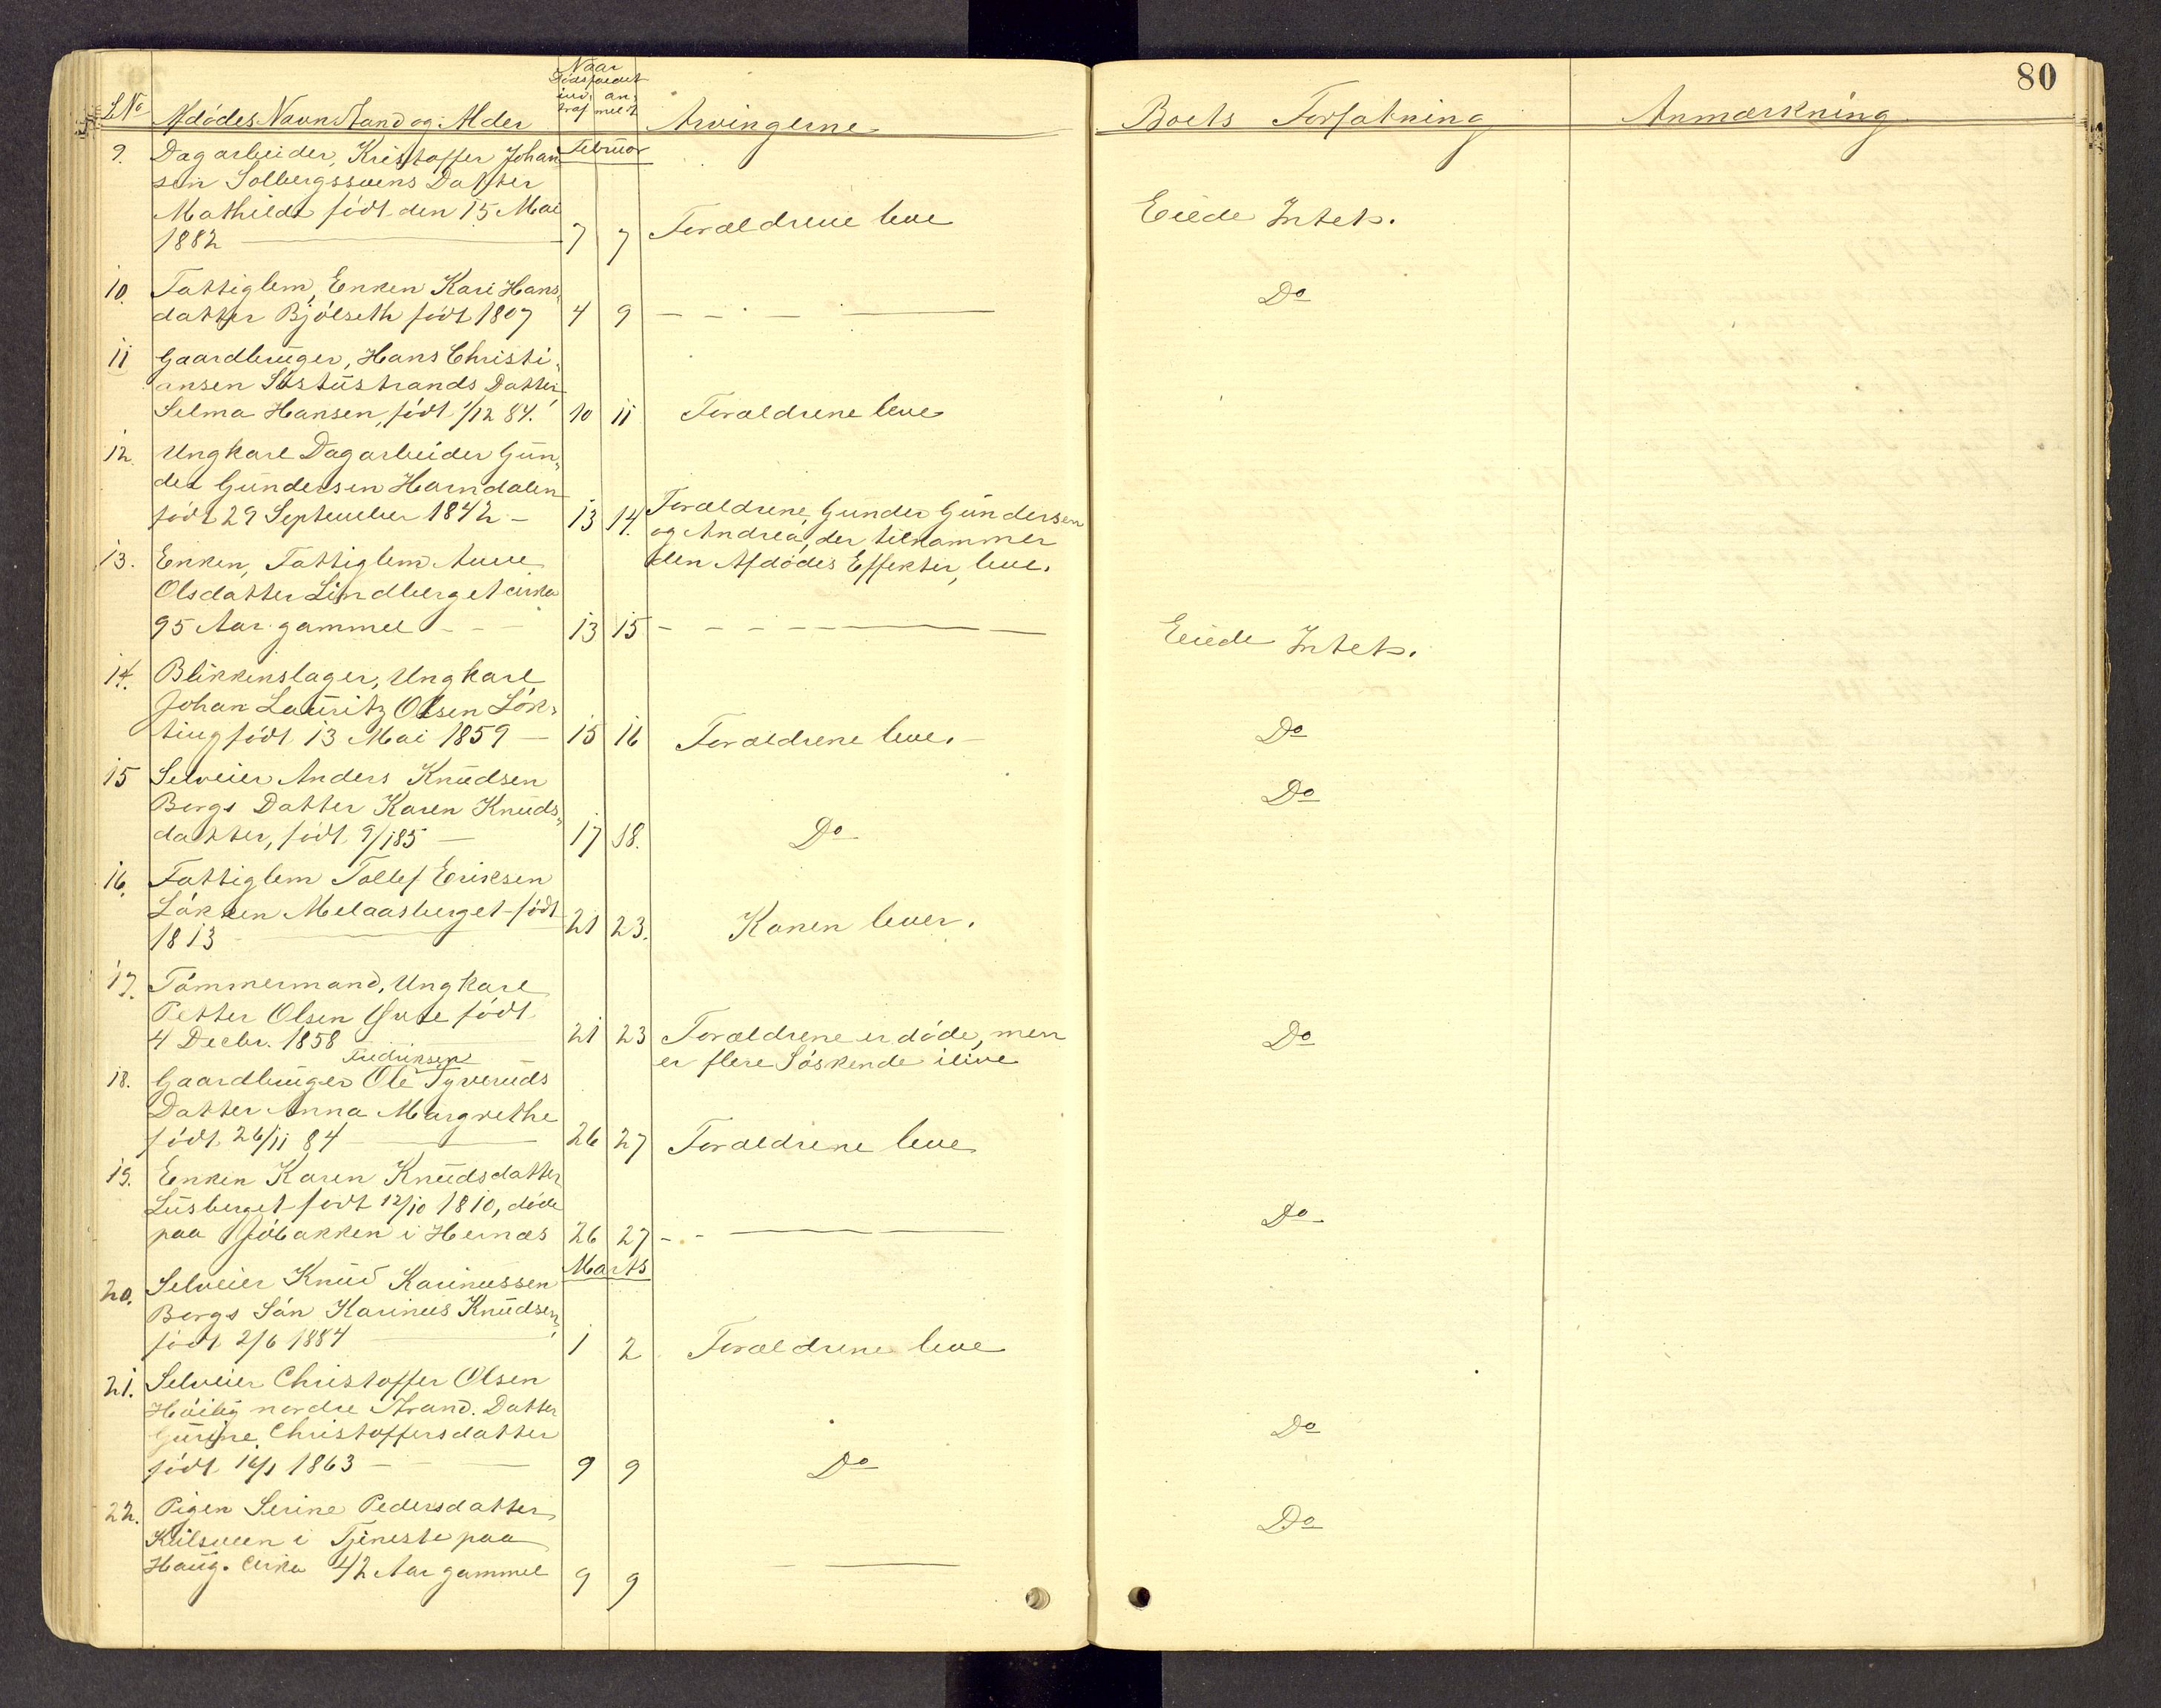 80
Naar
Dødsfaldet
LNo Afdødes Navn Stand og Alder indtraf anmeldt Arvingerne Boets Forfatning Anmærkning
Februar
9. Dagarbeider, Kristoffer Johan
sen Solbergssveens Datter
Mathilde født den 15 Mai
1882 — 7 7 Forældrene leve Eiede Intet.
10. Fattiglem, Enken Kari Hans,
datter Bjölseth født 1807 4 9 — — — Do
11 Gaardbruger, Hans Christi,
ansen Söstustrands Datter
Selma Hansen, født 1/12 84. 10 11 Forældrene leve
12. Ungkarl Dagarbeider Gun„
der Gundersen Harndalen
født 29 September 1842 — 13 14. Forældrene, Gunder Gundersen
og Andrea, der tilkommer
den Afdødes Effekter, leve.
13. Enken, Fattiglem Anne
Olsdatter Lindberget cirka
95 Aar gammel — — 13 15 — — — Eiede Intet.
14. Blikkenslager, Ungkarl
Johan Lauritz Olsen Lök,
ting født 13 Mai 1859 — 15 16 Forældrene leve. — Do
15 Selveier Anders Knudsen
Bergs Datter Karen Knuds„
datter, født 9/1 85 — 17 18. Do Do
16. Fattiglem Tollef Eriksen
Løkken Melaasberget — født
1813 — 21 23. Konen lever.
17. Tömmermand, Ungkarl
Petter Olsen født
4 Decbr. 1858 — 21 23 Forældrene er døde, men
er flere Söskende ilive Do
Fredriksen
18. Gaardbruger Ole Tyveruds
Datter Anna Margrethe
født 26/11 84 — 26 27 Forældrene leve
19. Enken Karen Knudsdatter
Lusberget født 12/10 1810, døde
paa Sjöbakken i Hernæs 26 27 — — — Do
Marts
20. Selveier Knud Karinussen
Bergs Sön Karinus Knudsen,
født 2/6 1884 — 1 2 Forældrene leve
21. Selveier Christoffer Olsen
nordre Strand. Datter
Gurine Christoffersdatter
født 16/1 1863 — — 9 9 Do Do
22. Pigen Serine Pedersdatter
Kulsveen i Tjeneste paa
Haug. Cirka 42 Aar gammel 9 9 — — Do